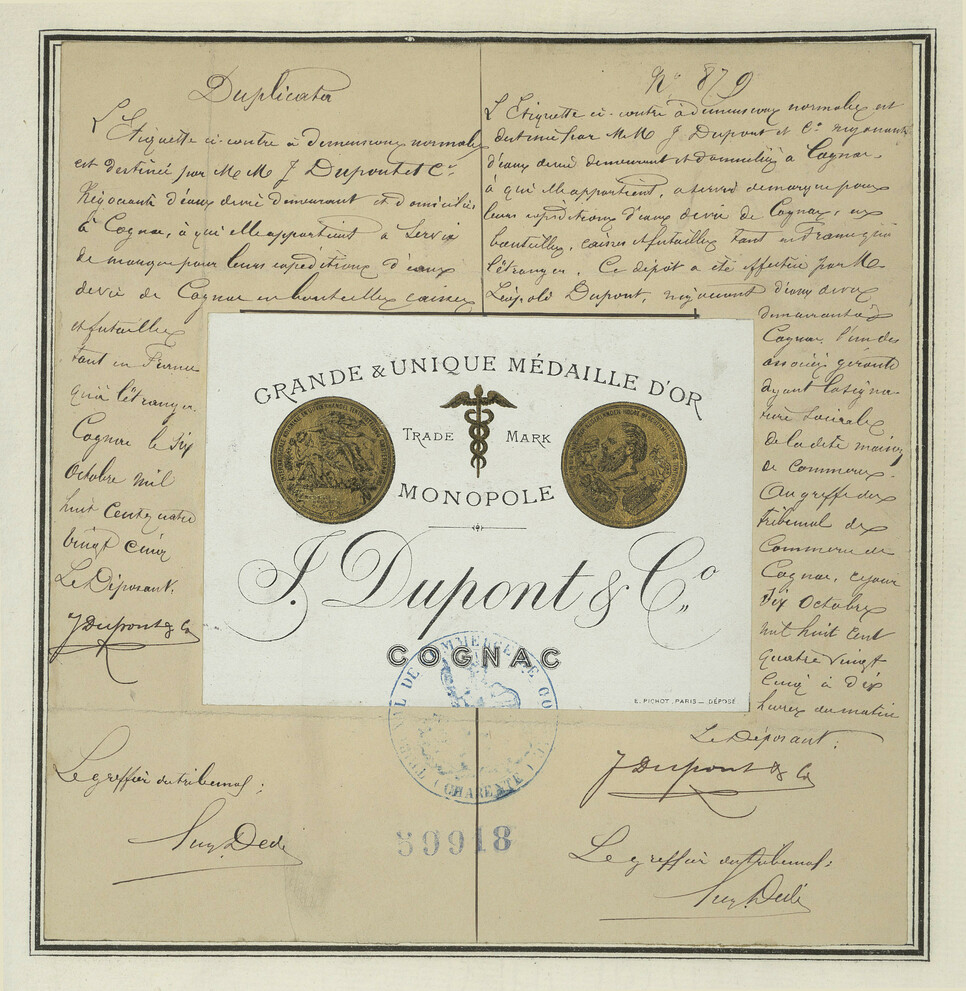 Duplicata
L'Etiquette ci-contre à dimensions normales
est destinée par M M J Dupont et Cie
Négociants d'eaux de vie demeurant et domiciliés
à Cognac, à qui elle appartient a servir
de marque pour leurs expéditions d'eaux
de vie de Cognac en bouteilles caisses
et futailles
tant en France
qu'à l'étranger.
Cognac le Six
Octobre mil
huit cent quatre
vingt cinq
Le Déposant,
J Dupont & Co
Le greffier du tribunal;
No 879
L'Etiquette ci-contre à dimensions normales est
destinée par M M J Dupont et Cie négociants
d'eaux de vie demeurant et domiciliés à Cognac.
à qui elle appartient, a servir de marque pour
leurs expéditions d'eaux de vie de Cognac, en
bouteilles, caisses et futailles tant en France qu'à
l'étranger. Ce dépôt a été effectué par M.
Léopold Dupont, négociant d'eaux de vie
demeurant à
Cognac, l'un des
associés gérants
ayant la signa-
ture Sociale
de la dite maison
de Commerce.
Au greffe du
tribunal de
Commerce de
Cognac, ce jour
Six Octobre
mil huit Cent
quatre vingt
Cinq à dix
heures du matin
Le Déposant;
J Dupont & Co
Le greffier du tribunal:
GRANDE & UNIQUE MÉDAILLE D'OR
TRADE MARK
MONOPOLE
J. Dupont & Co
COGNAC
E. PICHOT, PARIS — DÉPOSÉ
CHARENTE
59918